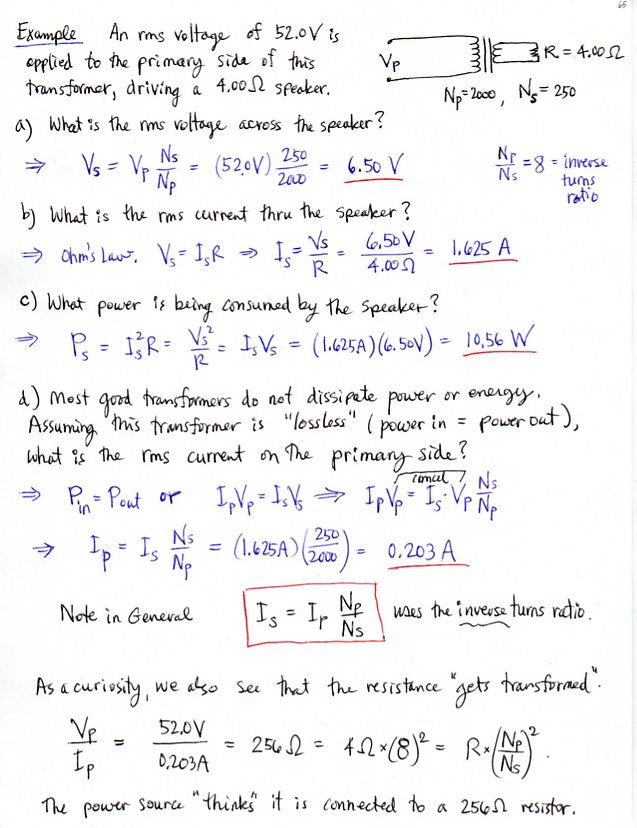 65
Example An rms voltage of 52.0V is
applied to the primary side of this
transformer, driving a 4.00Ω speaker.
Vp R = 4.00Ω
Np=2000, Ns=250
a) What is the rms voltage across the speaker?
⇒ Vs = Vp Ns/Np = (52.0V) 250/2000 = 6.50 V
Np/Ns = 8 = inverse
turns
ratio
b) What is the rms current thru the speaker?
⇒ Ohm's Law. Vs = IsR ⇒ Is = Vs/R = 6.50V/4.00Ω = 1.625 A
c) What power is being consumed by the speaker?
⇒ Ps = Is²R = Vs²/R = IsVs = (1.625A)(6.50V) = 10.56 W
d) Most good transformers do not dissipate power or energy.
Assuming this transformer is "lossless" (power in = power out),
what is the rms current on the primary side?
cancel
⇒ Pin = Pout or IpVp = IsVs ⇒ IpVp = Is·Vp Ns/Np
⇒ Ip = Is Ns/Np = (1.625A)(250/2000) = 0.203 A
Note in General Is = Ip Np/Ns uses the inverse turns ratio.
As a curiosity, we also see that the resistance "gets transformed".
Vp/Ip = 52.0V/0.203A = 256Ω = 4Ω×(8)² = R×(Np/Ns)².
The power source "thinks" it is connected to a 256Ω resistor.